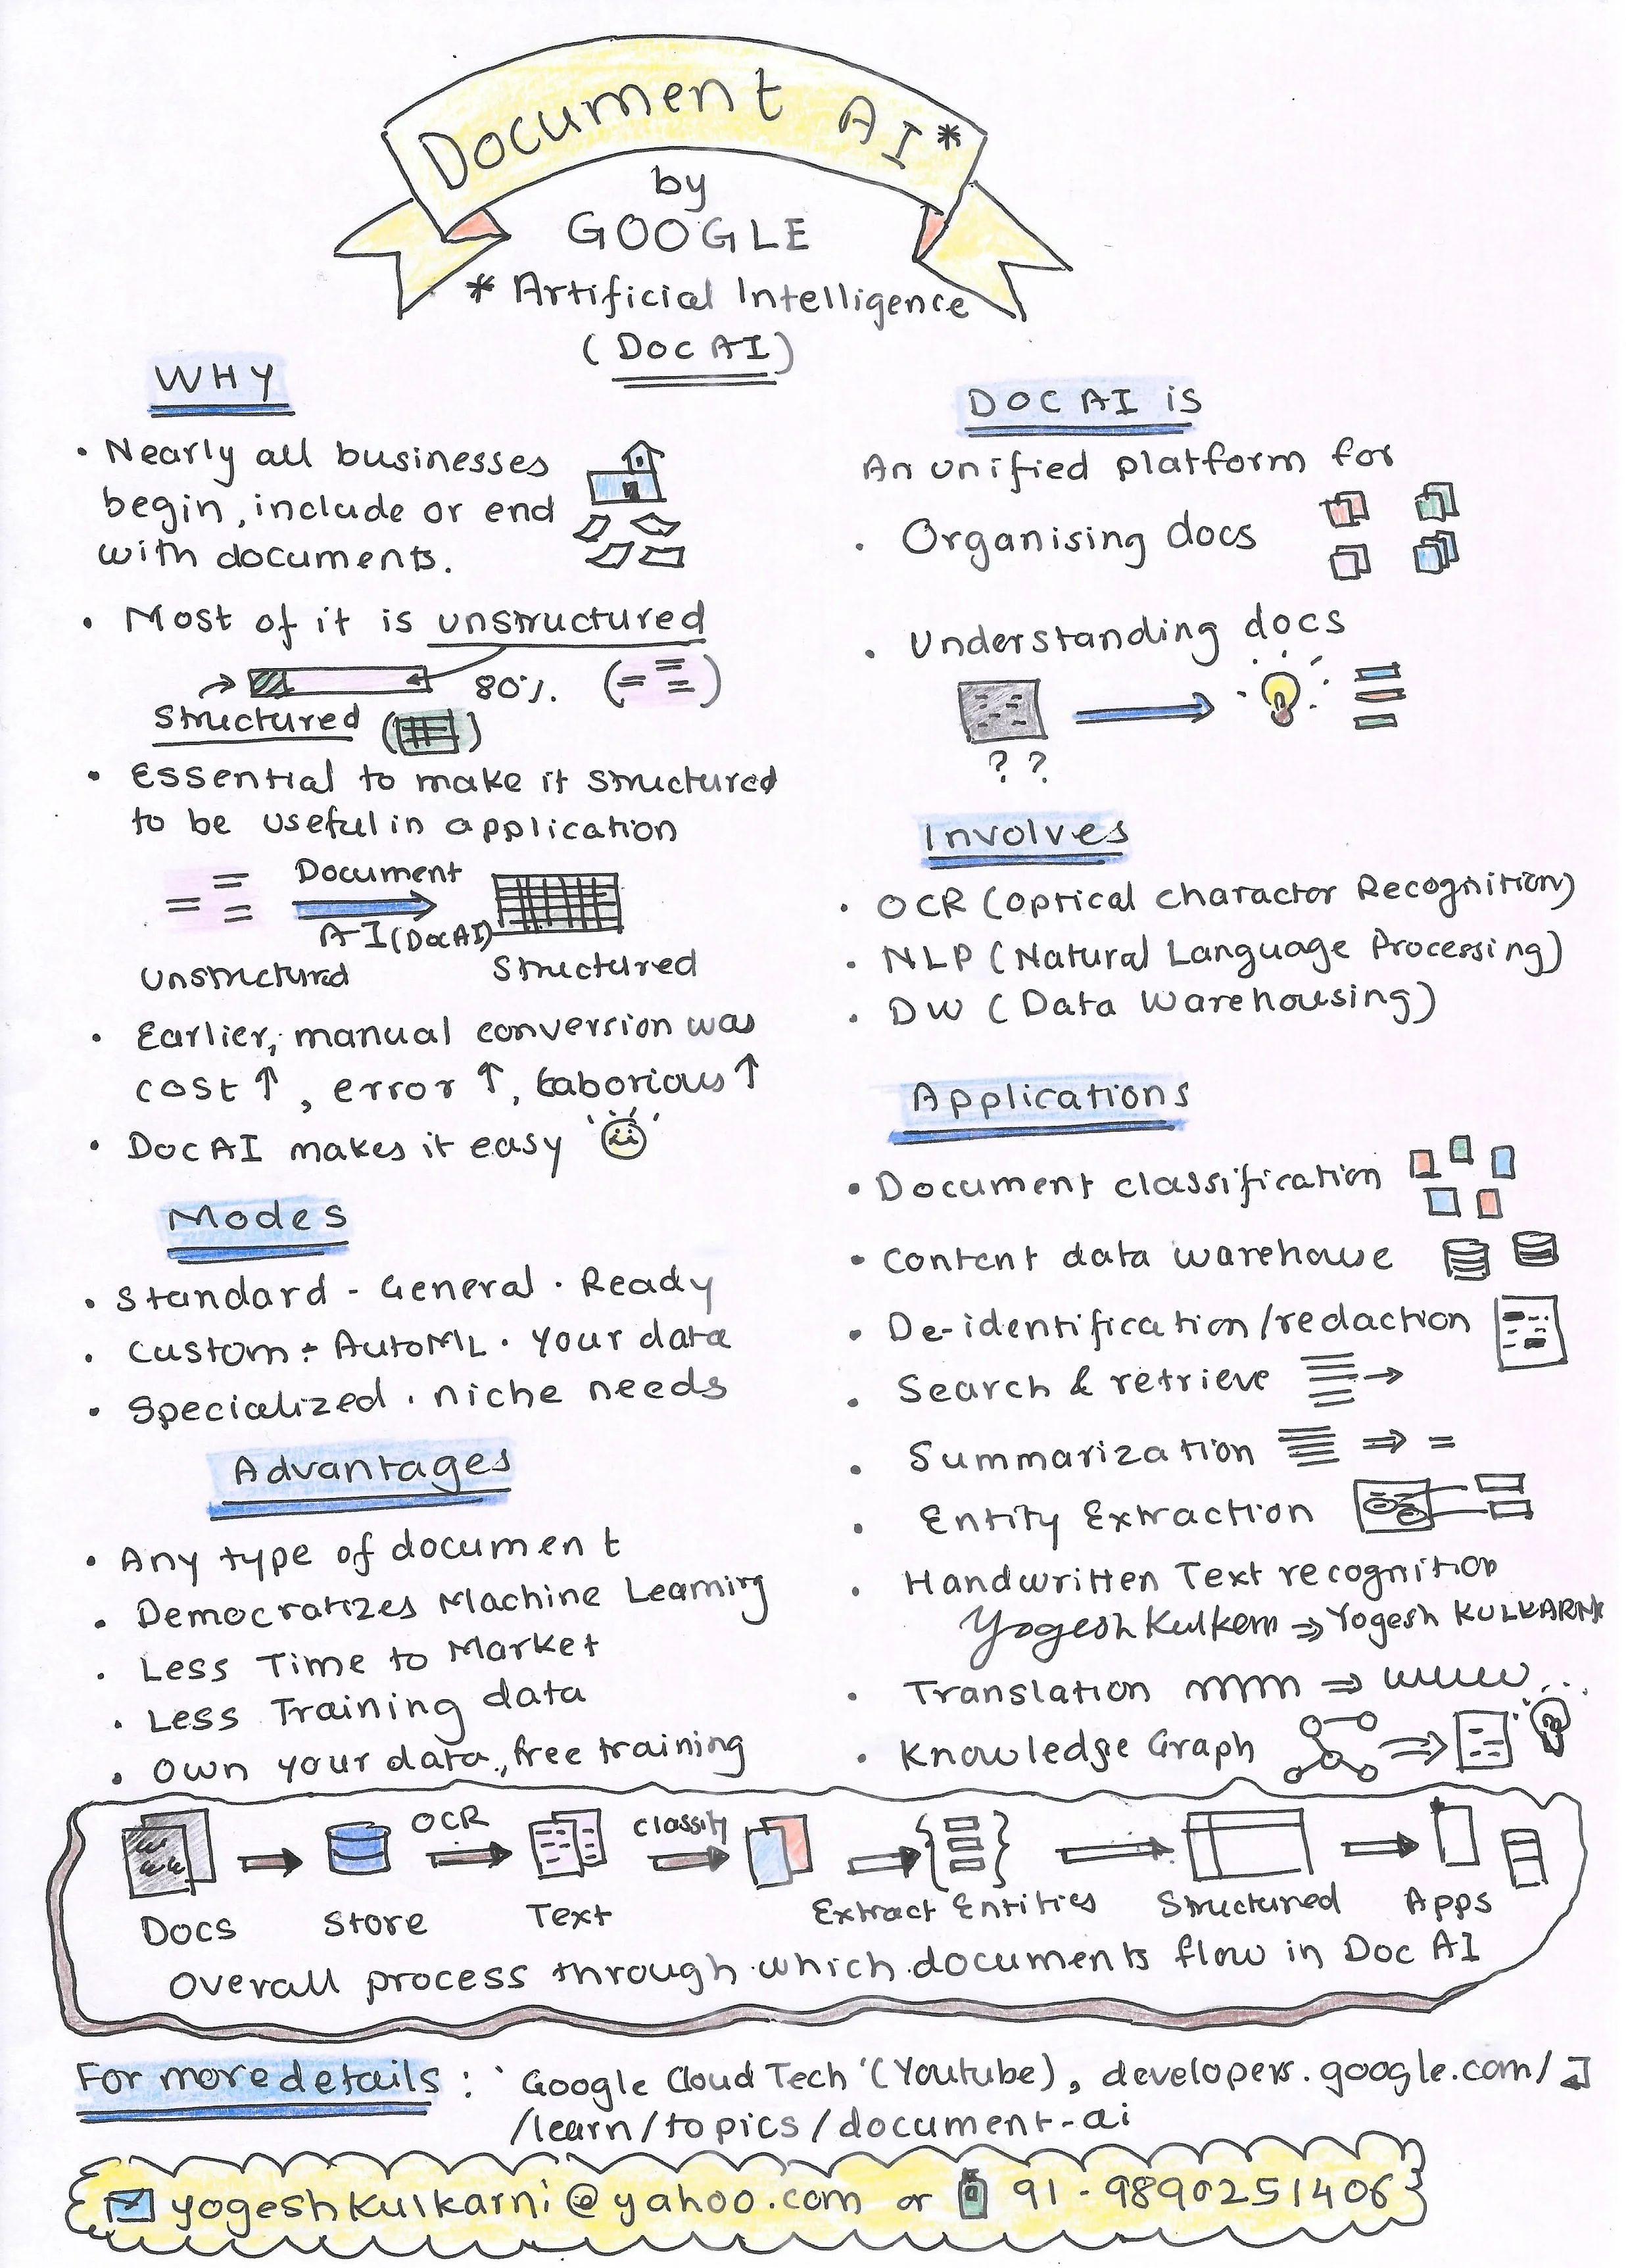 Document AI*
by
GOOGLE
* Artificial Intelligence
(DOC AI)
WHY
• Nearly all businesses
begin, include or end
with documents.
• Most of it is unstructured
80%.
Structured
• Essential to make it structured
to be useful in application
Document
AI (DocAI)
Unstructured
Structured
• Earlier, manual conversion was
cost ↑, error ↑, Laborious ↑
• DOCAI makes it easy
Modes
• Standard - General · Ready
• Custom - AutoML · Your data
• Specialized · niche needs
Advantages
• Any type of document
• Democratizes Machine Learning
• Less Time to Market
• Less Training data
• Own your data, free training
DOC AI is
An unified platform for
• Organising docs
• Understanding docs
? ?
Involves
• OCR (Optical Charactor Recognition)
• NLP (Natural Language Processing)
• DW (Data Warehousing)
Applications
• Document classification
• Content data warehouse
• De-identification/redaction
• Search & retrieve
• Summarization
• Entity Extraction
• Handwritten Text recognition
Yogesh Kulkarni ⇒ Yogesh KULKARNI
• Translation
• Knowledge Graph
OCR
Classify
Docs
Store
Text
Extract Entities
Structured
Apps
Overall process through which documents flow in Doc AI
For more details : 'Google Cloud Tech' (Youtube), developers.google.com/
/learn/topics/document-ai
yogeshkulkarni@yahoo.com or 91-9890251406